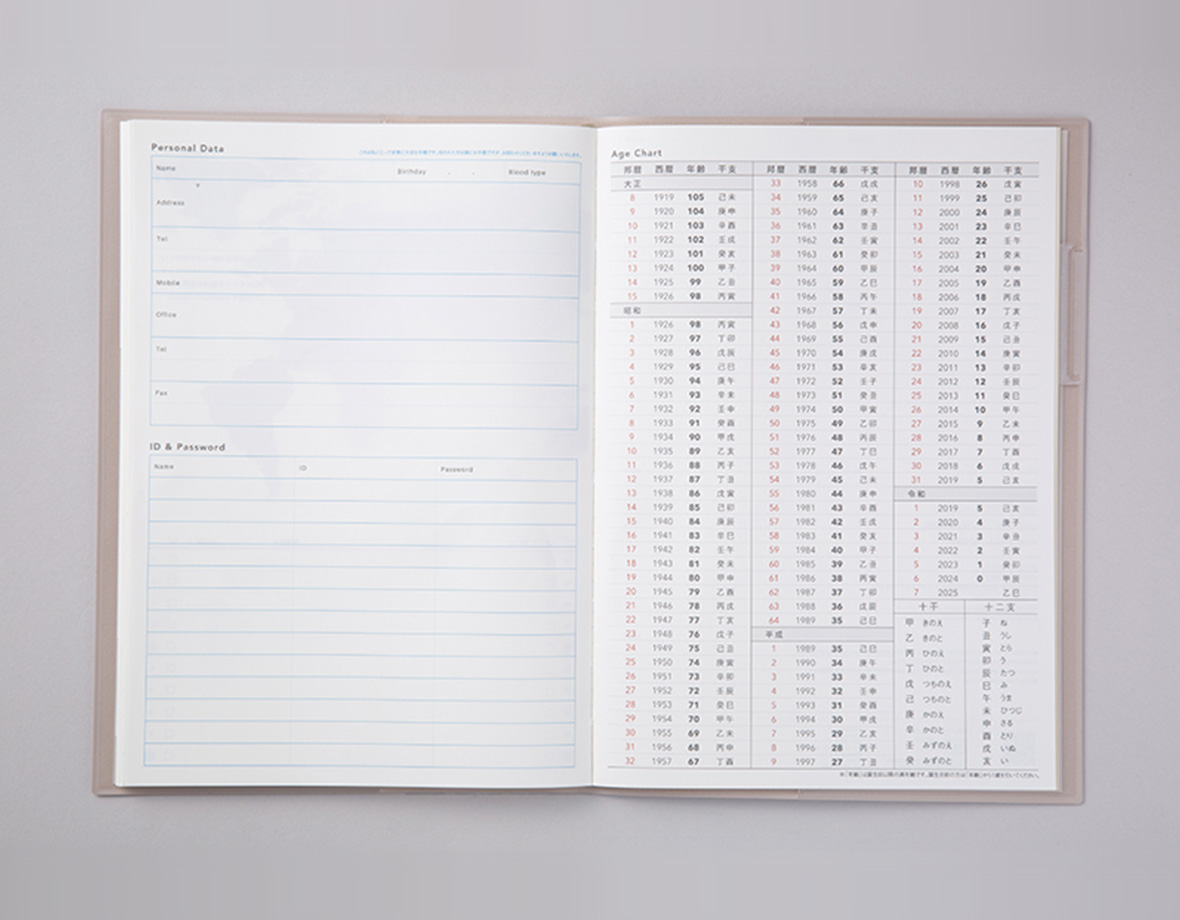 Personal Data
Name Birthday . . Blood type
〒
Address
Tel
Mobile
Office
Tel
Fax
ID & Password
Name ID Password
Age Chart
邦暦 西暦 年齢 干支
大正
8 1919 105 己未
9 1920 104 庚申
10 1921 103 辛酉
11 1922 102 壬戌
12 1923 101 癸亥
13 1924 100 甲子
14 1925 99 乙丑
15 1926 98 丙寅
昭和
1 1926 98 丙寅
2 1927 97 丁卯
3 1928 96 戊辰
4 1929 95 己巳
5 1930 94 庚午
6 1931 93 辛未
7 1932 92 壬申
8 1933 91 癸酉
9 1934 90 甲戌
10 1935 89 乙亥
11 1936 88 丙子
12 1937 87 丁丑
13 1938 86 戊寅
14 1939 85 己卯
15 1940 84 庚辰
16 1941 83 辛巳
17 1942 82 壬午
18 1943 81 癸未
19 1944 80 甲申
20 1945 79 乙酉
21 1946 78 丙戌
22 1947 77 丁亥
23 1948 76 戊子
24 1949 75 己丑
25 1950 74 庚寅
26 1951 73 辛卯
27 1952 72 壬辰
28 1953 71 癸巳
29 1954 70 甲午
30 1955 69 乙未
31 1956 68 丙申
32 1957 67 丁酉
邦暦 西暦 年齢 干支
33 1958 66 戊戌
34 1959 65 己亥
35 1960 64 庚子
36 1961 63 辛丑
37 1962 62 壬寅
38 1963 61 癸卯
39 1964 60 甲辰
40 1965 59 乙巳
41 1966 58 丙午
42 1967 57 丁未
43 1968 56 戊申
44 1969 55 己酉
45 1970 54 庚戌
46 1971 53 辛亥
47 1972 52 壬子
48 1973 51 癸丑
49 1974 50 甲寅
50 1975 49 乙卯
51 1976 48 丙辰
52 1977 47 丁巳
53 1978 46 戊午
54 1979 45 己未
55 1980 44 庚申
56 1981 43 辛酉
57 1982 42 壬戌
58 1983 41 癸亥
59 1984 40 甲子
60 1985 39 乙丑
61 1986 38 丙寅
62 1987 37 丁卯
63 1988 36 戊辰
64 1989 35 己巳
平成
1 1989 35 己巳
2 1990 34 庚午
3 1991 33 辛未
4 1992 32 壬申
5 1993 31 癸酉
6 1994 30 甲戌
7 1995 29 乙亥
8 1996 28 丙子
9 1997 27 丁丑
邦暦 西暦 年齢 干支
10 1998 26 戊寅
11 1999 25 己卯
12 2000 24 庚辰
13 2001 23 辛巳
14 2002 22 壬午
15 2003 21 癸未
16 2004 20 甲申
17 2005 19 乙酉
18 2006 18 丙戌
19 2007 17 丁亥
20 2008 16 戊子
21 2009 15 己丑
22 2010 14 庚寅
23 2011 13 辛卯
24 2012 12 壬辰
25 2013 11 癸巳
26 2014 10 甲午
27 2015 9 乙未
28 2016 8 丙申
29 2017 7 丁酉
30 2018 6 戊戌
31 2019 5 己亥
令和
1 2019 5 己亥
2 2020 4 庚子
3 2021 3 辛丑
4 2022 2 壬寅
5 2023 1 癸卯
6 2024 0 甲辰
7 2025 乙巳
十干
甲 きのえ
乙 きのと
丙 ひのえ
丁 ひのと
戊 つちのえ
己 つちのと
庚 かのえ
辛 かのと
壬 みずのえ
癸 みずのと
十二支
子 ね
丑 うし
寅 とら
卯 う
辰 たつ
巳 み
午 うま
未 ひつじ
申 さる
酉 とり
戌 いぬ
亥 い